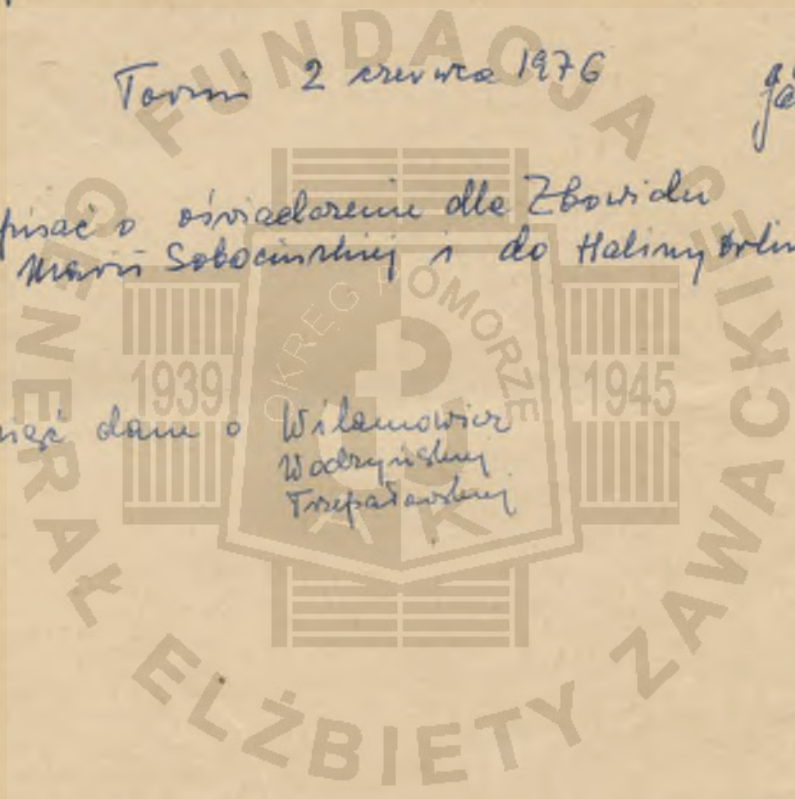 Toruń 2 czerwca 1976
pisać o oświadczenie dla Zbowidu
Marii Sobocińskiej i do Haliny
dane o Wilamowicz
Wodzyńskiej
Trzepałowskiej
FUNDACJA GENERAŁ ELŻBIETY ZAWACKIEJ
OKRĘG POMORZE
1939
1945
AK